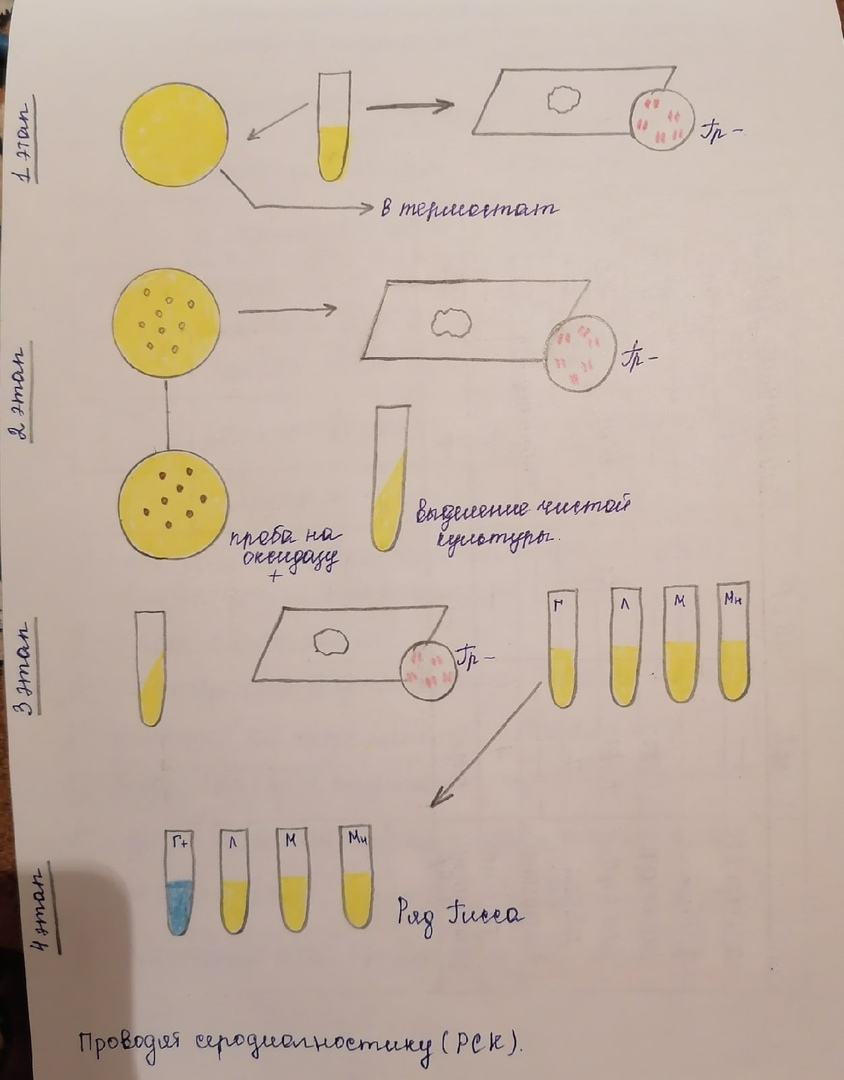 1 этап
Гр -
В термостат
2 этап
Гр -
проба на
оксидазу
+
выделение чистой
культуры.
3 этап
Гр -
Г Л М Мн
4 этап
Г+ Л М Мн
Ряд Гисса
Проводят серодиагностику (РСК).